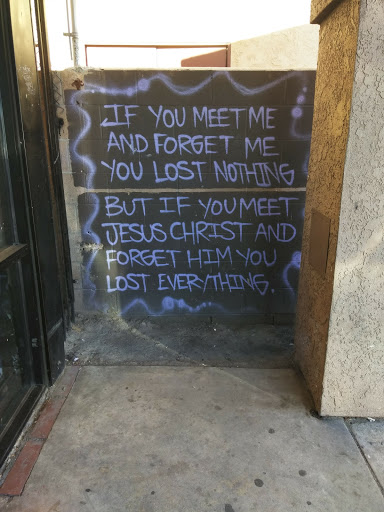 IF YOU MEET ME
AND FORGET ME
YOU LOST NOTHING
BUT IF YOU MEET
JESUS CHRIST AND
FORGET HIM YOU
LOST EVERYTHING.